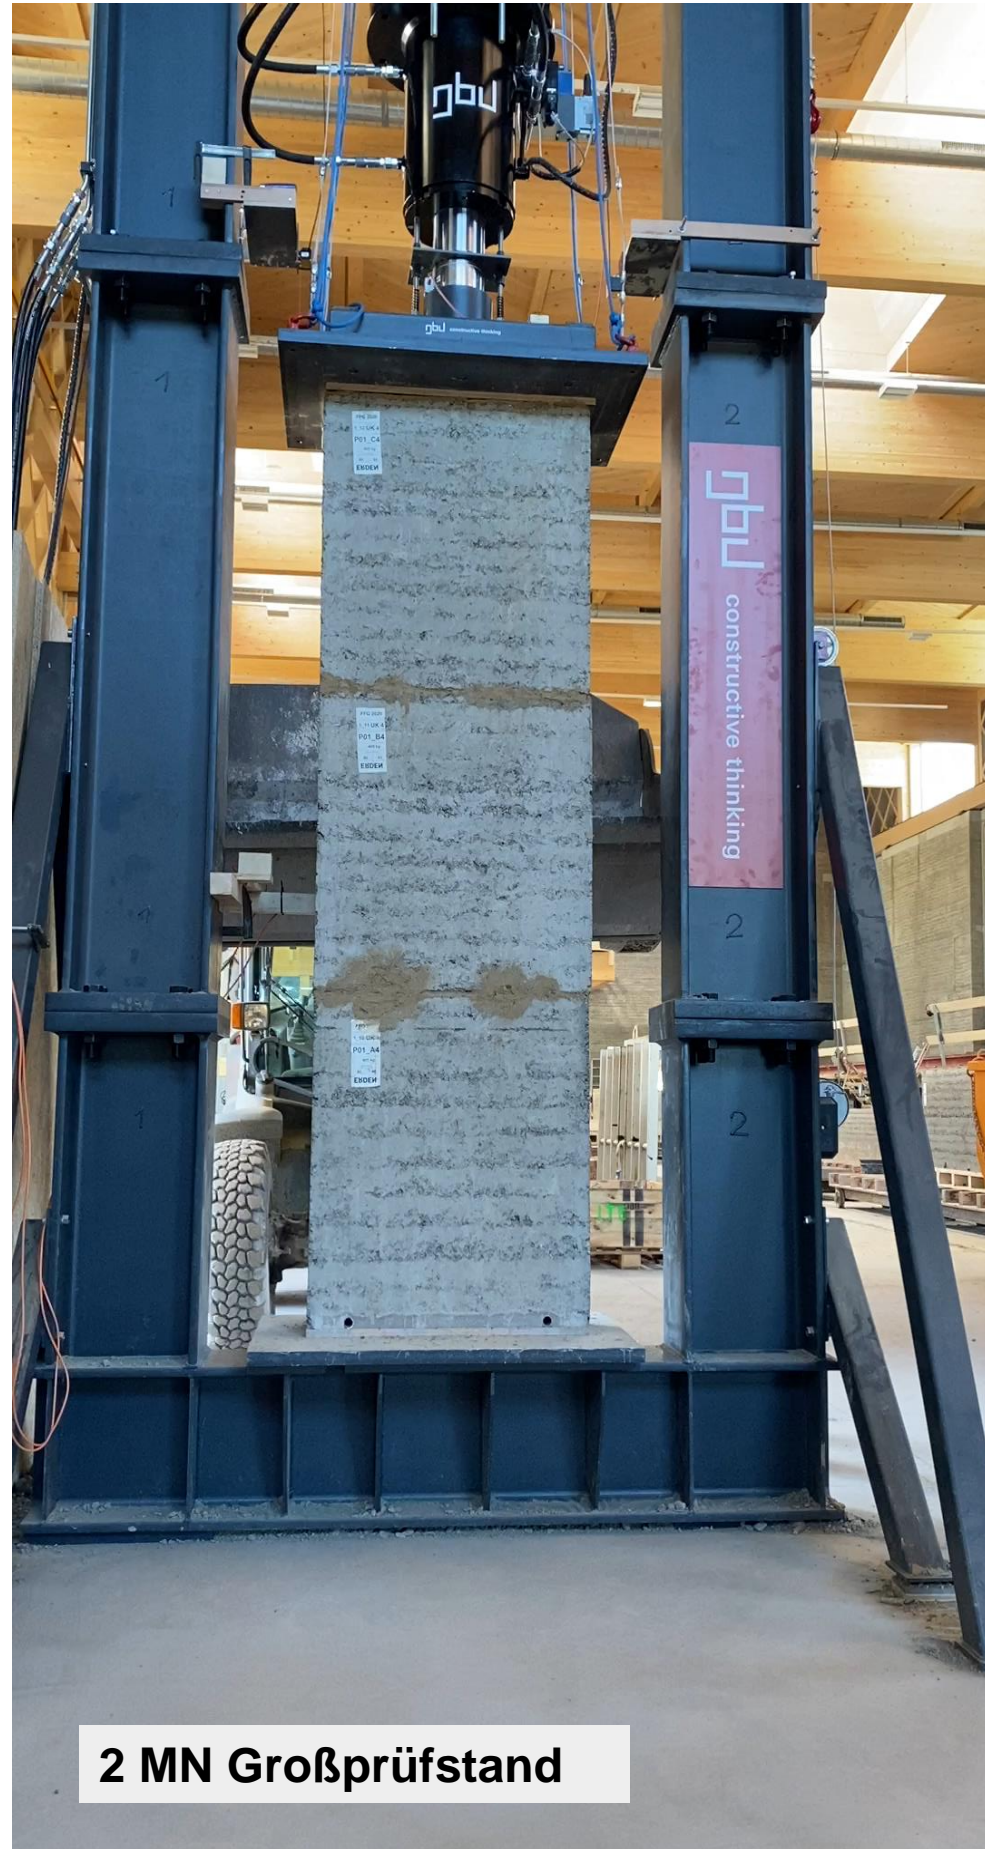 gbd
1
gbd constructive thinking
1
2
P01_C4
ERDEN
gbd
constructive thinking
P01_B4
ERDEN
1
2
P01_A4
ERDEN
1
2
2 MN Großprüfstand